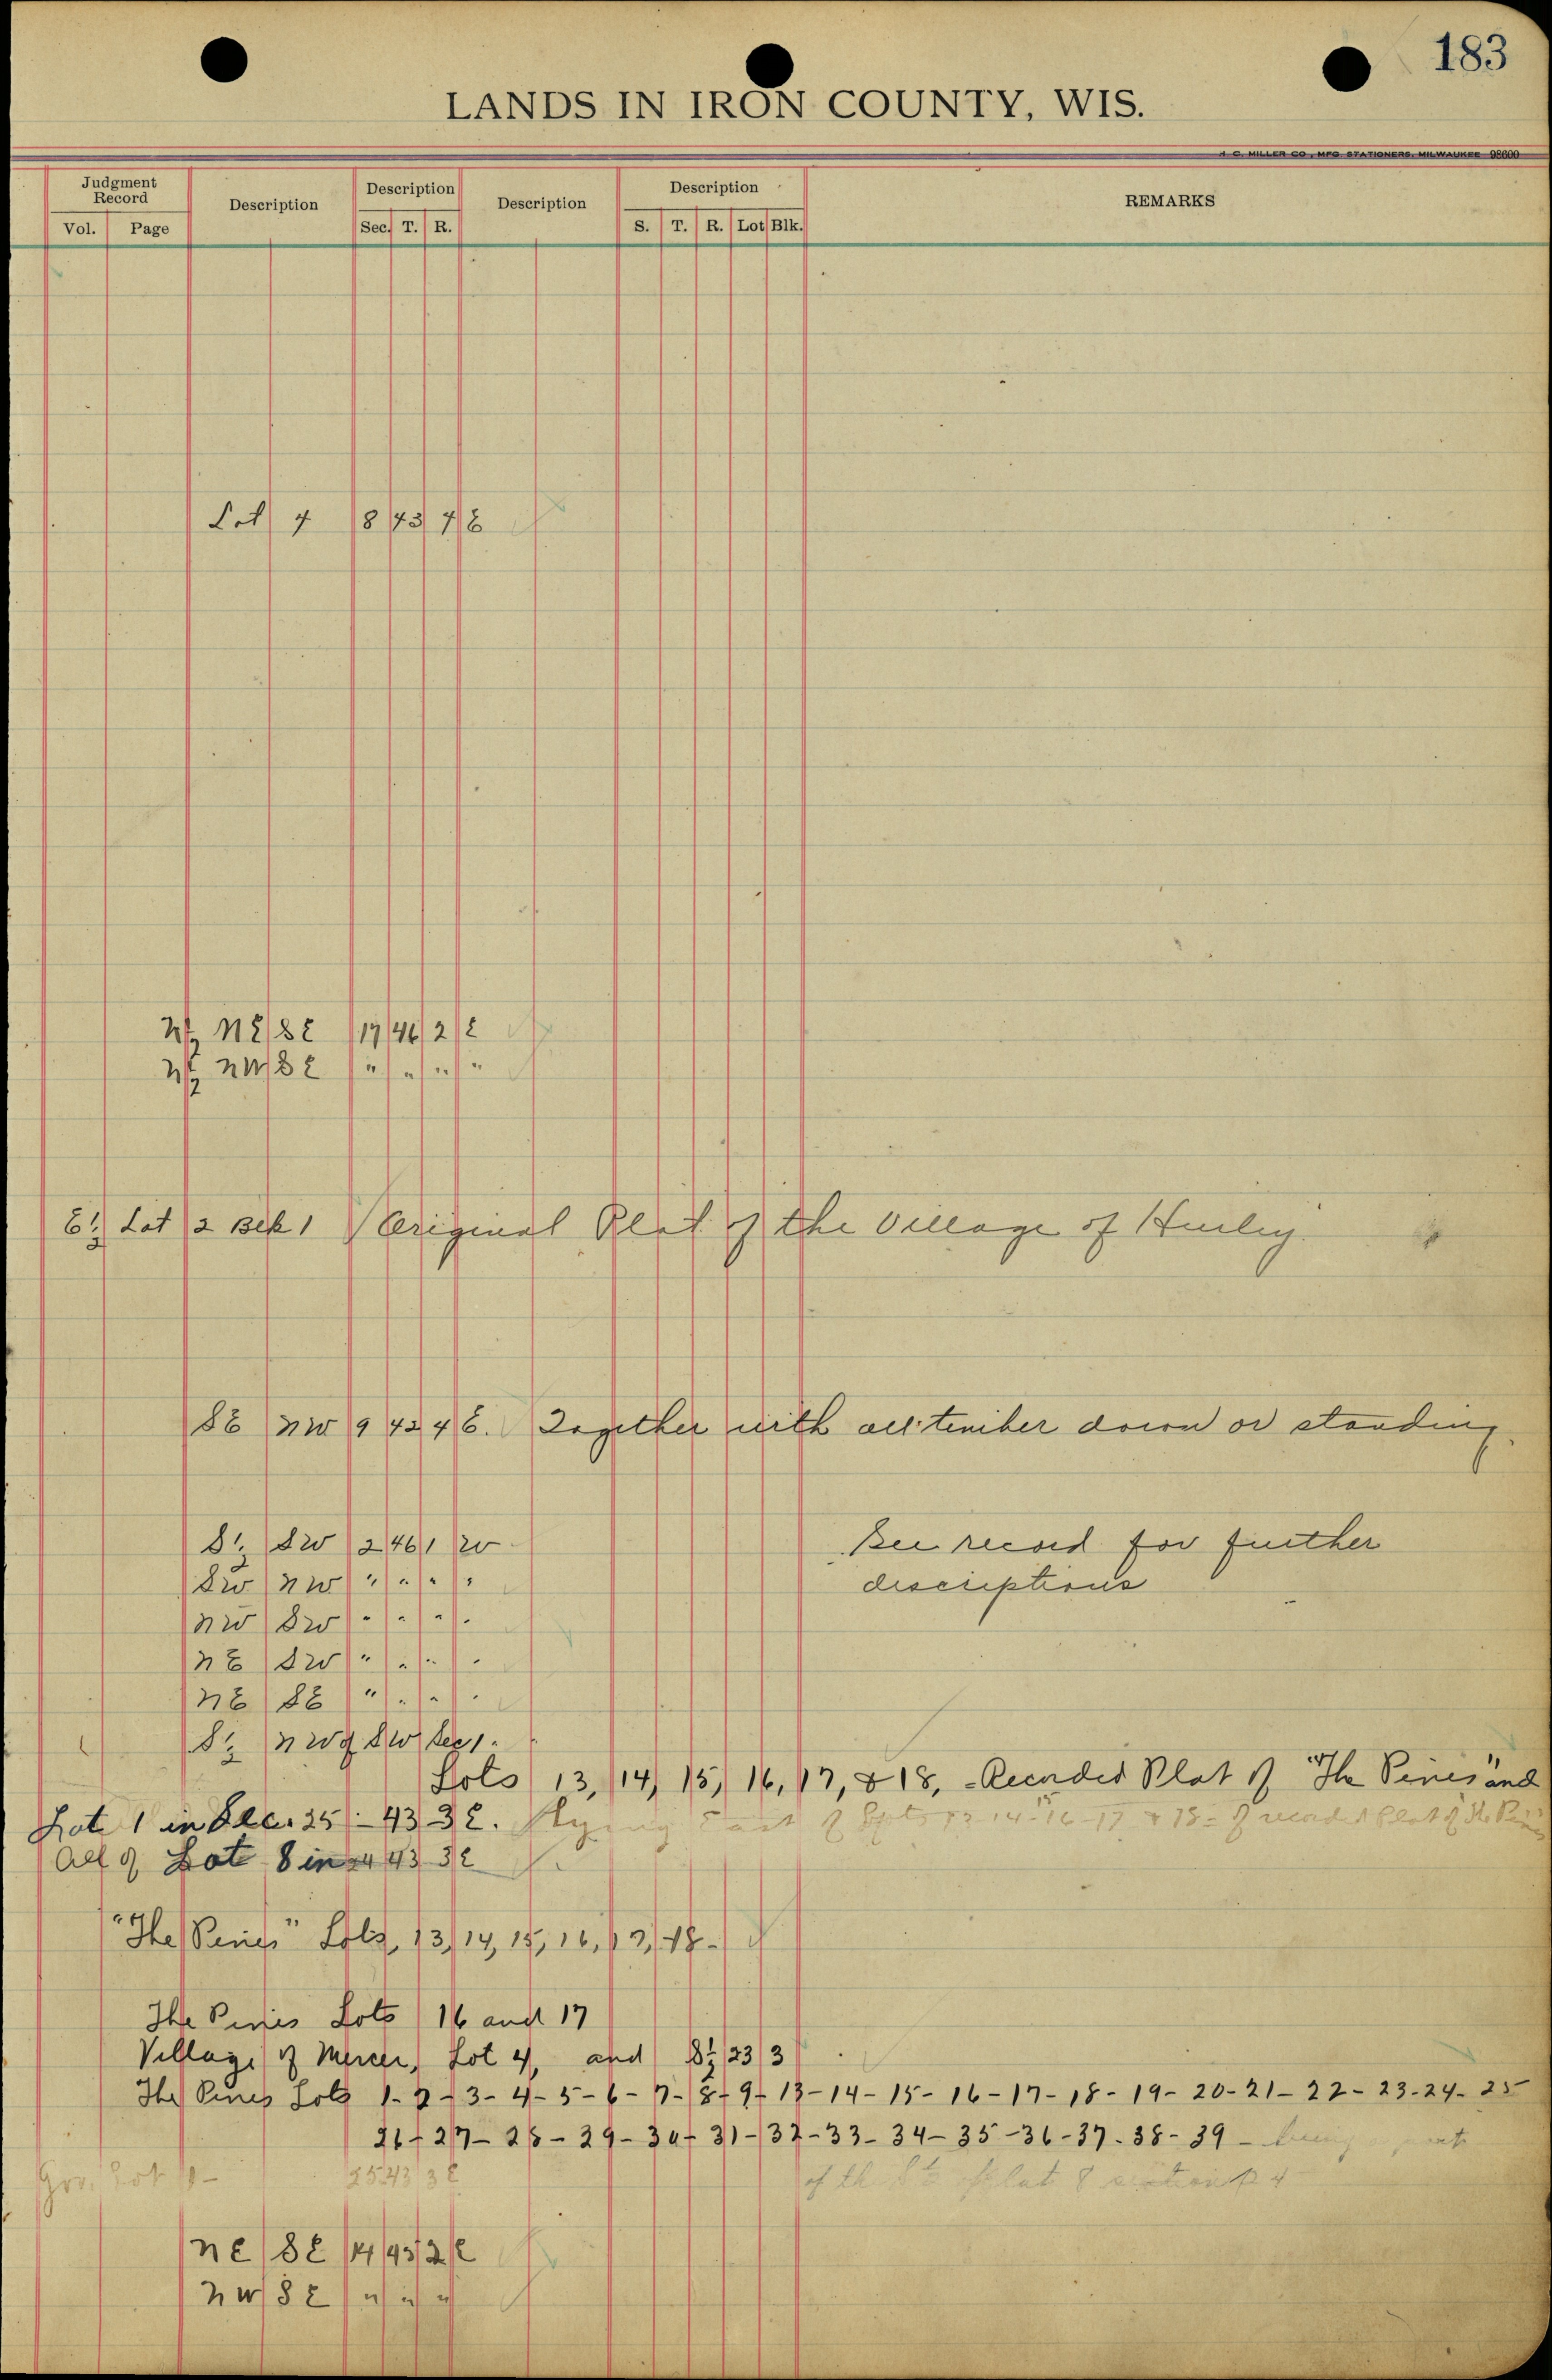 183
LANDS IN IRON COUNTY, WIS.
H. C. MILLER CO., MFG. STATIONERS, MILWAUKEE 98600
Judgment Record Description Description Description Description REMARKS
Vol. Page Sec. T. R. S. T. R. Lot Blk.
Lot 4 8 43 4 E
N½ NE SE 17 46 2 E
N½ NW SE " " " "
E½ Lot 2 Blk 1 Original Plat of the Village of Hurley.
SE NW 9 42 4 E. Together with all timber down or standing.
S½ SW 2 46 1 W See record for further
SW NW " " " " descriptions
NW SW " " " "
NE SW " " " "
NE SE " " " "
S½ NW of SW Sec 1.
Lots 13, 14, 15, 16, 17, & 18, - Recorded Plat of "The Pines" and
Lot 1 in Sec. 25 - 43 - 3E. lying East of Lots 13 14-15-16-17 & 18 - of recorded Plat of The Pines
All of Lot 8 in 24 43 3E
"The Pines" Lots, 13, 14, 15, 16, 17, 18 -
The Pines Lots 16 and 17
Village of Mercer, Lot 4, and S½ 23 3
The Pines Lots 1-2-3-4-5-6-7-8-9-13-14-15-16-17-18-19-20-21-22-23-24-25
26-27-28-29-30-31-32-33-34-35-36-37-38-39- being part
Gov. Lot 1- 25 43 3E of the
NE SE 14 45 2 E
NW SE " " "